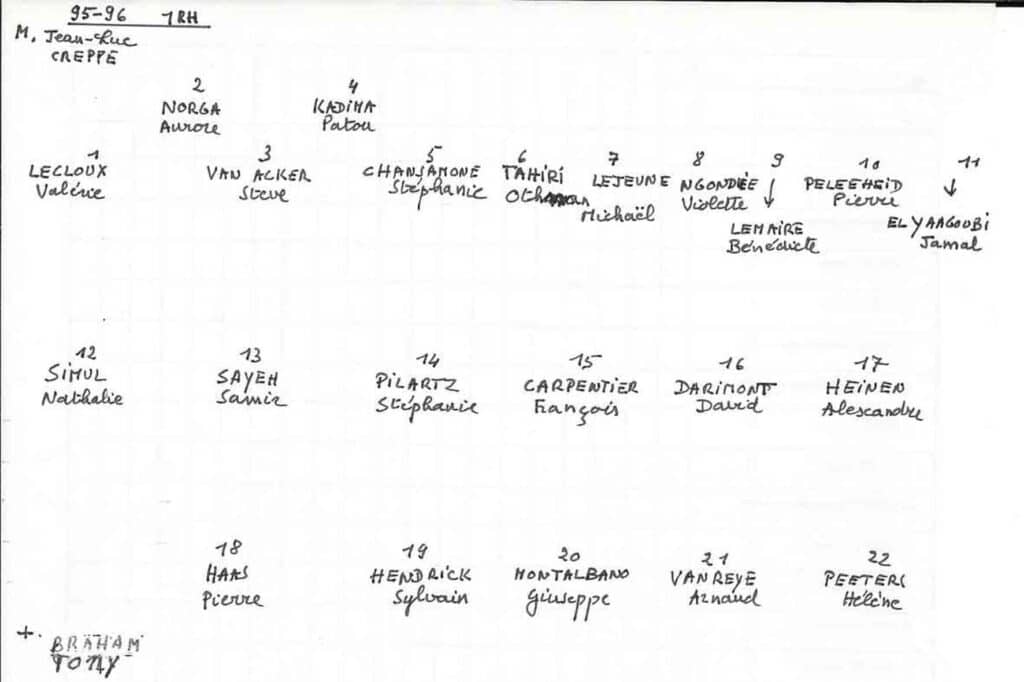 95-96 1RH
M. Jean-Luc
CREPPE
2
NORGA
Aurore
4
KADIMA
Patou
1
LECLOUX
Valérie
3
VAN ACKER
Steve
5
CHANSAMONE
Stéphanie
6
TAHIRI
7
LEJEUNE
Michaël
8
Violette
9
↓
LEMAIRE
Bénédicte
10
PELEEHEID
Pierre
11
↓
EL YAAGOUBI
Jamal
12
SIMUL
Nathalie
13
SAYEH
Samir
14
PILARTZ
Stéphanie
15
CARPENTIER
François
16
DARIMONT
David
17
HEINEN
Alexandre
18
HAAS
Pierre
19
HENDRICK
Sylvain
20
MONTALBANO
Giuseppe
21
VANREYE
Arnaud
22
PEETERS
Hélène
+.
BRAHAM
TONY